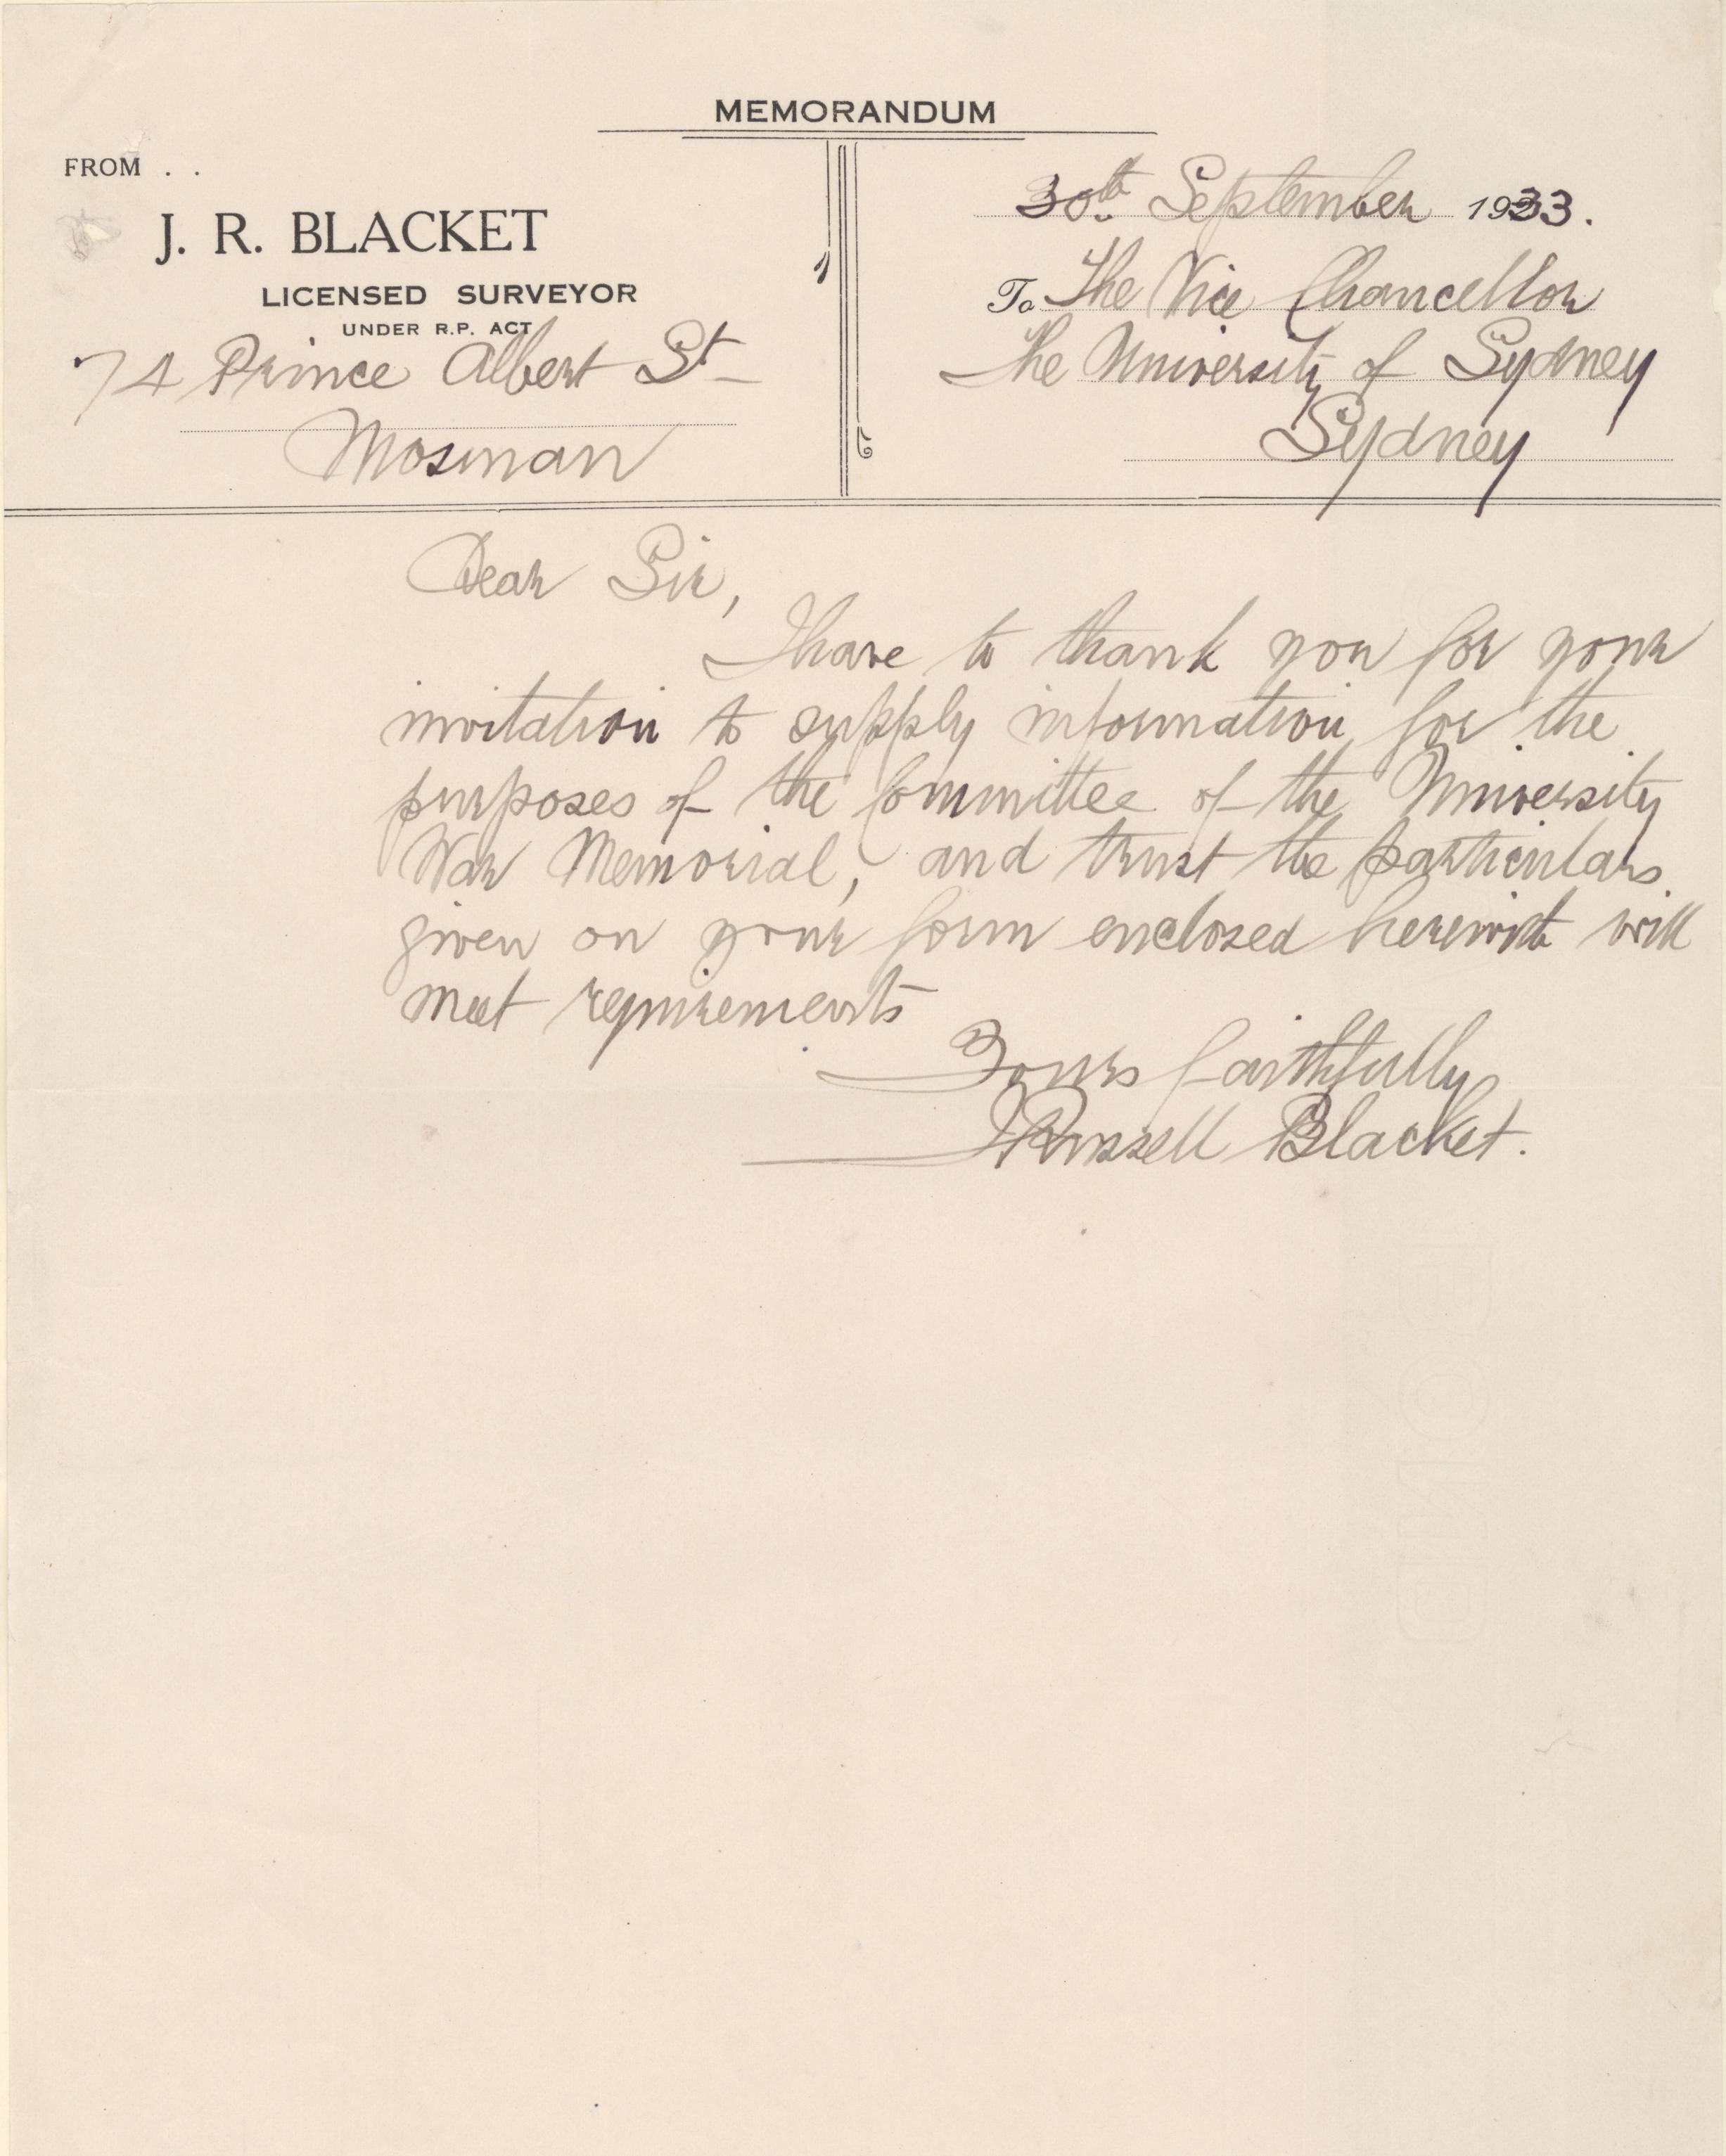 MEMORANDUM
FROM . .
J. R. BLACKET
LICENSED SURVEYOR
UNDER R.P. ACT
74 Prince Albert St
Mosman
30th September 1933.
To The Vice Chancellor
The University of Sydney
Sydney
Dear Sir,
I have to thank you for your
invitation to supply information for the
purposes of the Committee of the University
War Memorial, and trust the particulars
given on your form enclosed herewith will
meet requirements
Yours faithfully
J Russell Blacket.
BOND